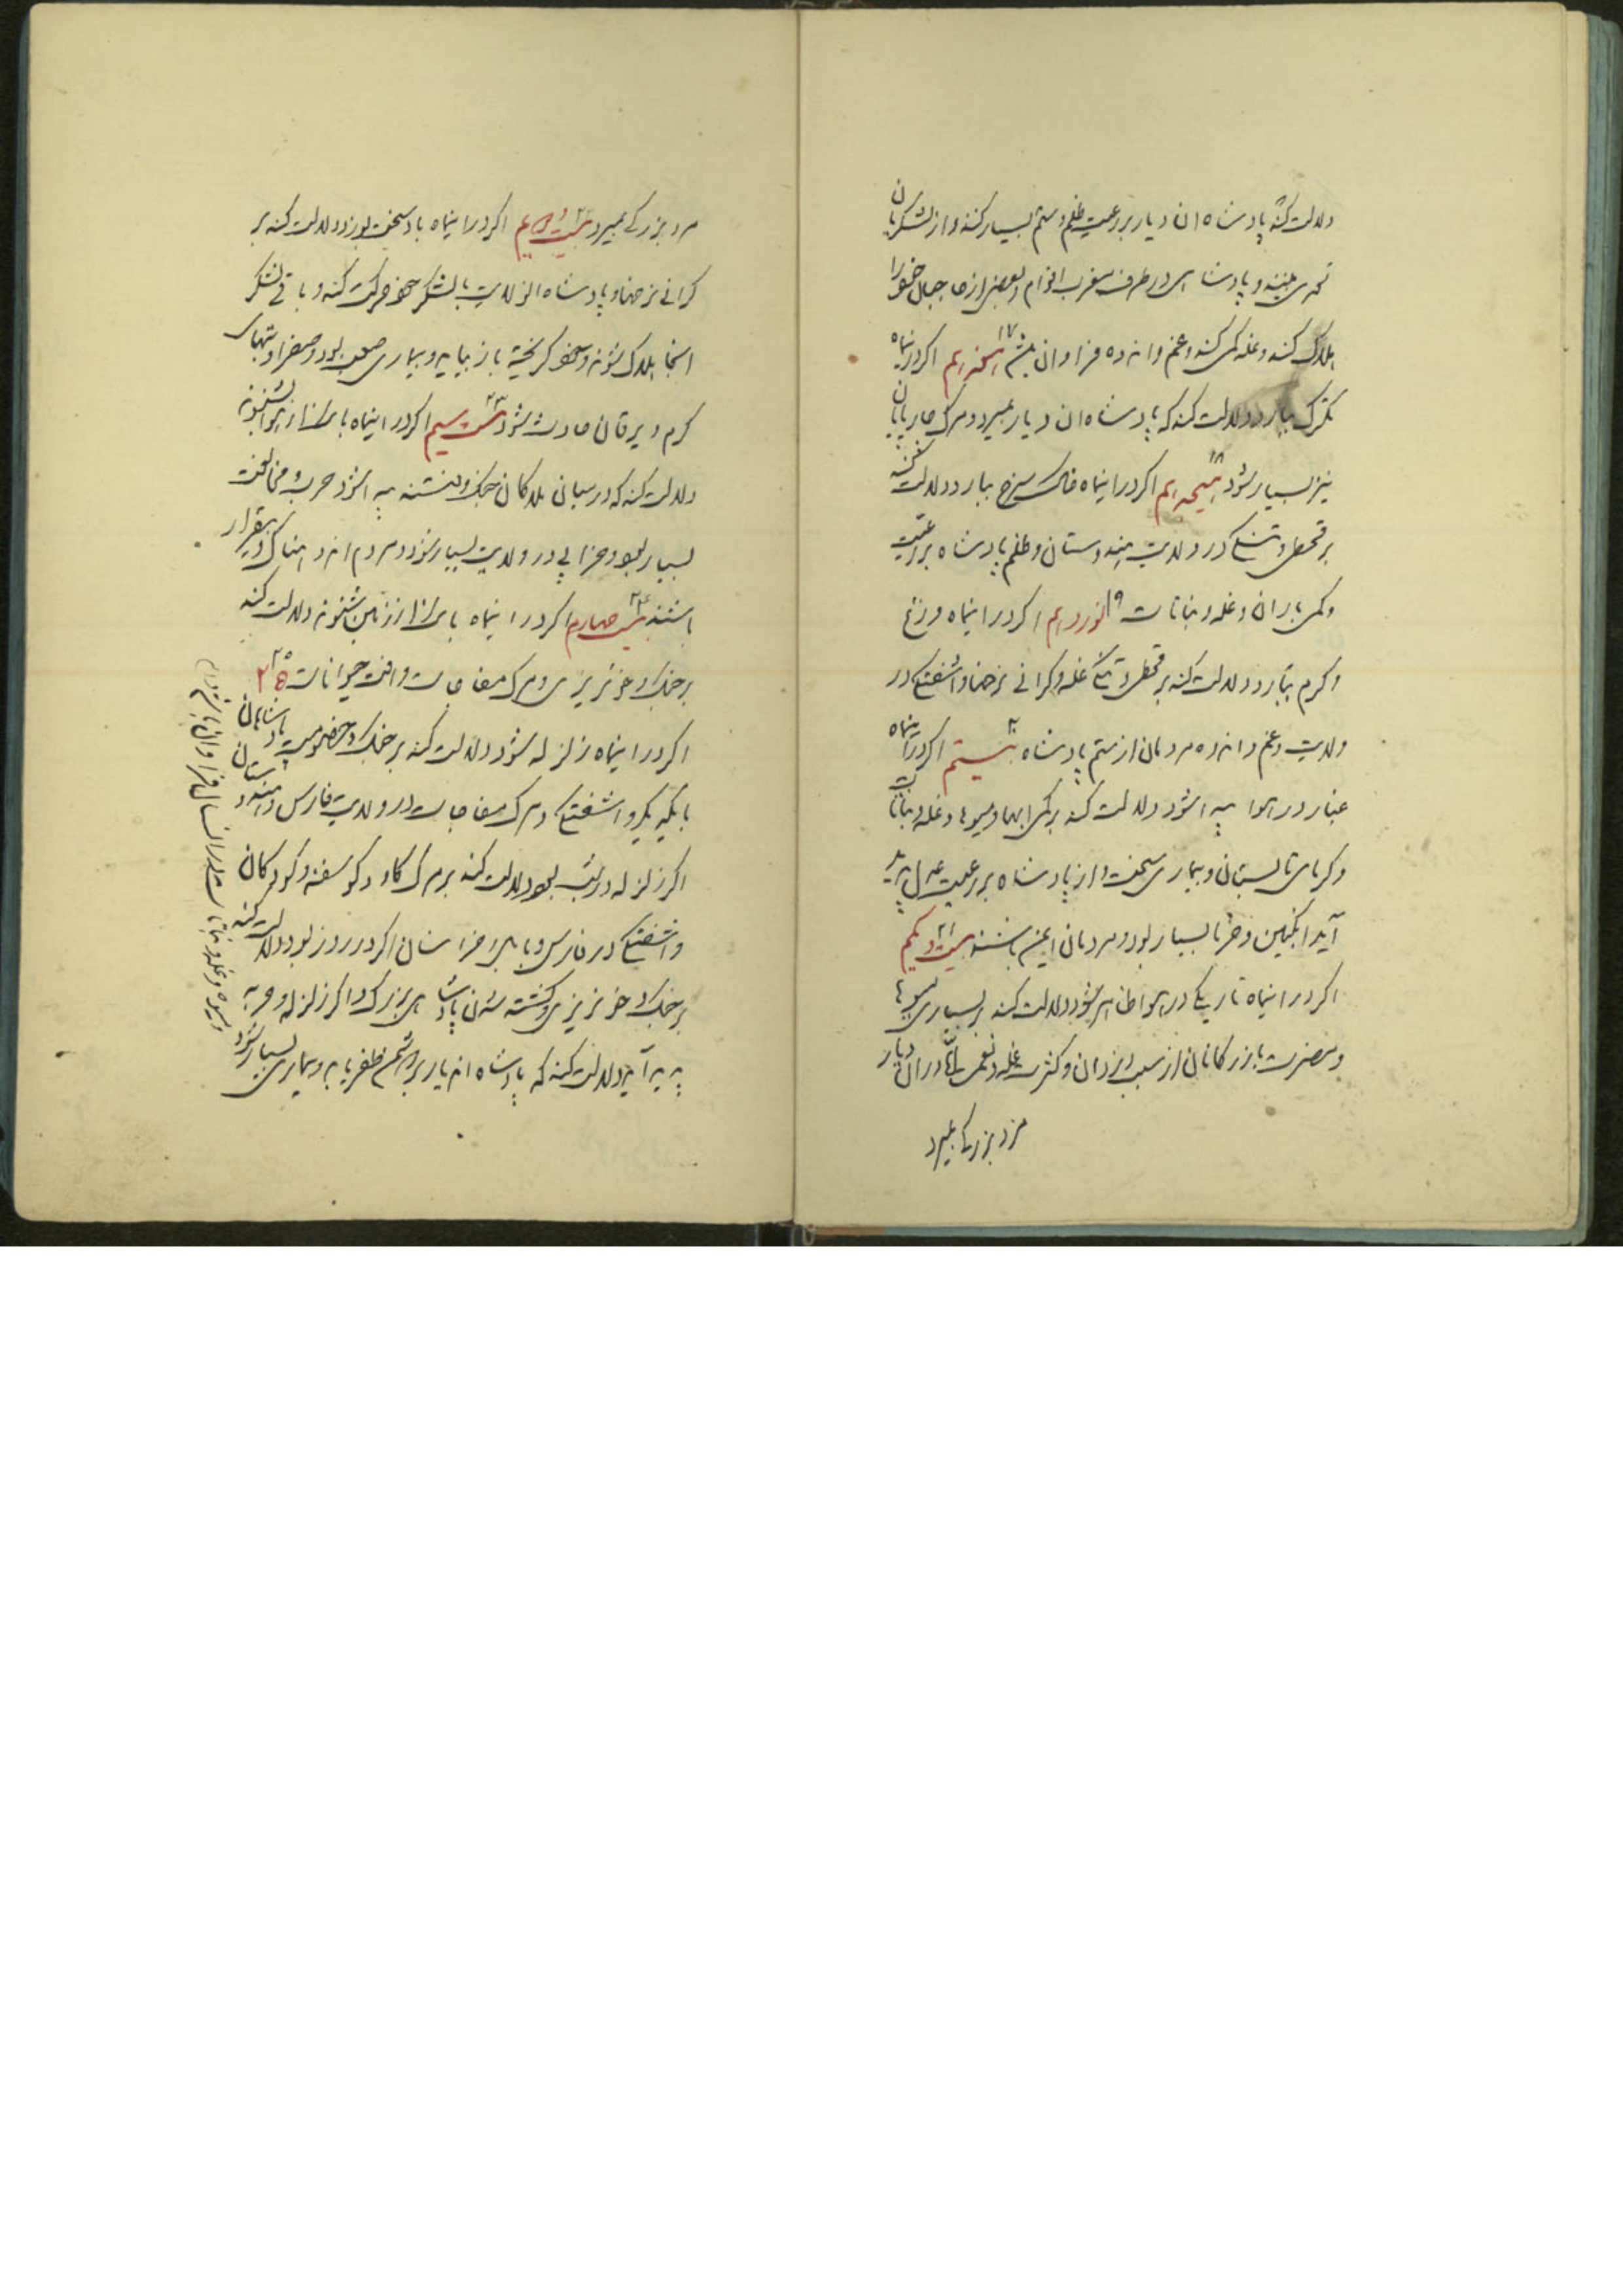 دلالت کند پادشاه ان دیار بر رعیت ظلم و ستم بسیار کند و از لشکریان
بدی بیند و پادشاهی در طرف مغرب اقوام و بعضی از جبال خود را
هلاک کند و غله کمی کند و غم و اندوه فراوان ۱۷ هفدهم اگر در اینماه
تگرگ ببارد دلالت کند که پادشاه ان دیار بمیرد و مرگ چارپایان
نیز بسیار شود ۱۸ هیجدهم اگر در اینماه خاک سرخ ببارد دلالت کند
بر قحط و تنگی در ولایت هندوستان و ظلم پادشاه بر رعیت
و کمی باران و غله و نباتات ۱۹ نوزدهم اگر در اینماه وزغ
و کرم ببارد دلالت کند بر قحط و تنگی غله و گرانی نرخها و اشفتگی در
ولایت و غم و اندوه مردمان از ستم پادشاه ۲۰ بیستم اگر در اینماه
غبار در هوا پیدا شود دلالت کند بر کمی ابها و میوه‌ها و غله و نباتات
و گرمای تابستان و بیماری سخت و از پادشاه بر رعیت عدل پدید
آید انگبین و خرما بسیار بود و مردمان ایمن باشند ۲۱ بیست و یکم
اگر در اینماه تاریکی در هوا ظاهر شود دلالت کند بر بسیاری میوه‌ها
و مضرت بازرگانان از سبب دزدان و کثرت غله و نعمت اما در ان دیار
مرد بزرگی بمیرد
مرد بزرگی بمیرد ۲۲ بیست و دویم اگر در اینماه باد سخت بوزد دلالت کند بر
گرانی نرخها و پادشاه از ولایت با لشکر خود حرکت کند و باقی لشکر
انجا هلاک شوند و خود گریخته باز بیاید و بیماری صعب بود و صفرا و تبهای
گرم و یرقان حادث شود ۲۳ بیست سیم اگر در اینماه بانگ از هوا بشنوند
دلالت کند که در میان ملکان جنگ و فتنه پیدا شود حرب و مخالفت
بسیار بود و خرابی در ولایت بسیار شود و مردم اندوهناک و بیقرار
باشند ۲۴ بیست چهارم اگر در اینماه بانگ از زمین شنوند دلالت کند
بر جنگ و خونریزی و مرگ مفاجات و افت حیوانات ۲۵
اگر در اینماه زلزله شود دلالت کند بر جنگ و خصومت پادشاهان
با یکدیگر و اشفتگی و مرگ مفاجات در ولایت فارس و هندوستان و
اگر زلزله در شب بود دلالت کند بر مرگ گاو و گوسفند و کودکان
و اشفتگی در فارس و بابل و خراسان اگر در روز بود دلالت کند
بر جنگ و خونریزی و کشته شدن پادشاهی بزرگ و اگر زلزله و
پدید آید دلالت کند که پادشاه اندیار بر دشمن ظفر یابد و بیماری بسیار شود
و میوه و غله و نباتات در انسال فراوان باشد